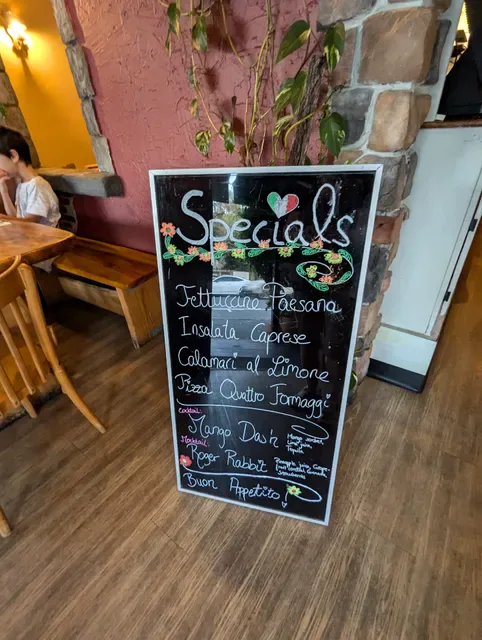 Specials
Fettuccine Paesana
Insalata Caprese
Calamari al Limone
Pizza Quattro Formaggi
Cocktail:
Mango Dash
Mango sorbet,
Lime juice
Tequila
Mocktail:
Roger Rabbit
Pineapple juice,
Buon Appetito